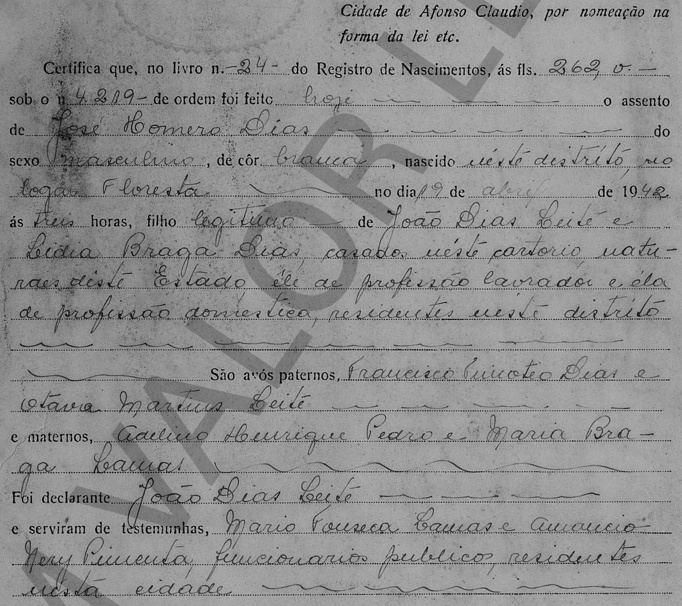 Cidade de Afonso Claudio, por nomeação na
forma da lei etc.
Certifica que, no livro n. -24- do Registro de Nascimentos, ás fls. 262, v. —
sob o n. 4.219- de ordem foi feito hoje — — — o assento
de José Homero Dias — — — — do
sexo masculino, de côr branca, nascido néste distrito, no
logar Floresta — no dia 19 de abril de 1942
ás tres horas, filho legitimo — de João Dias Leite e
Lidia Braga Dias, casados néste cartorio, natu-
raes déste Estado, êle de profissão lavrador e éla
de profissão domestica, residentes neste distrito
São avós paternos, Francisco Timoteo Dias e
Otavia Martins Leite — — — —
e maternos, Adelino Henrique Pedro e Maria Bra-
ga Lamas
Foi declarante João Dias Leite — — —
e serviram de testemunhas, Mario Fonseca Lamas e Amancio
Nery Pimenta, funcionarios publicos, residentes
nésta cidade
VALOR